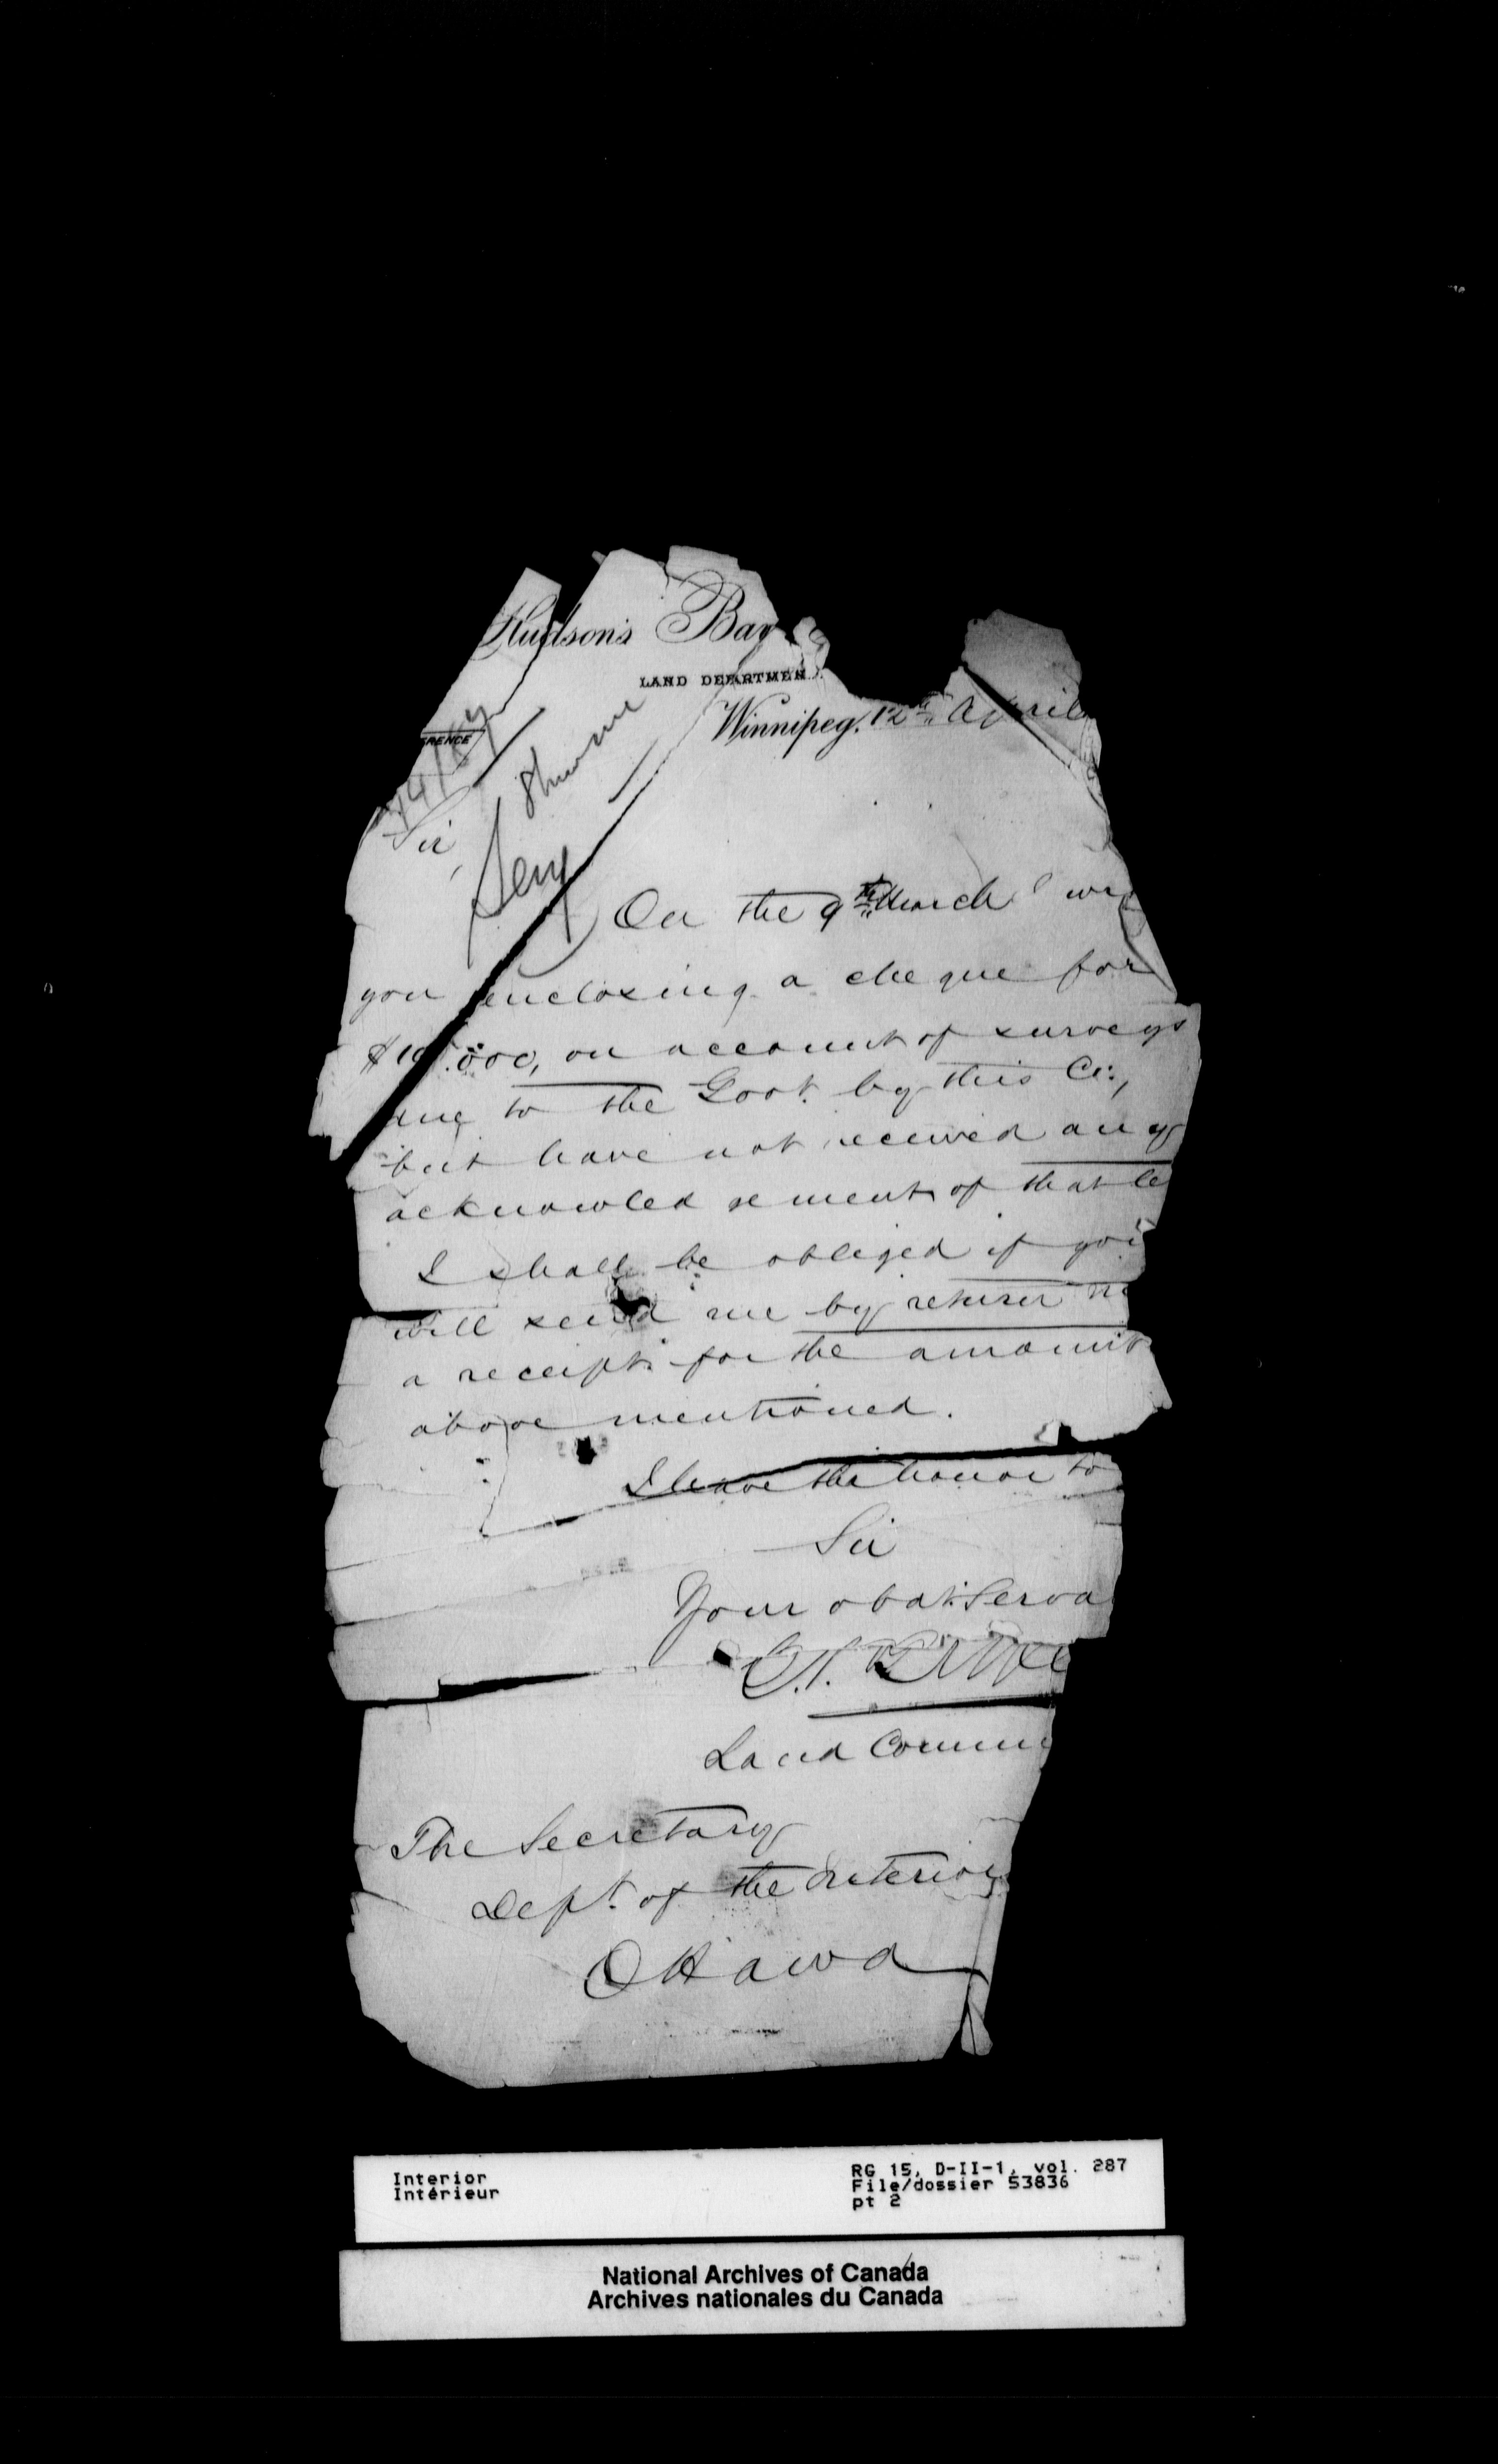 Hudson's Bay
LAND DEPARTMEN
Winnipeg, 12th April
ERENCE
Sir,
On the 9th March I wr
you enclosing a cheque for
000, on account of surveys
due to the Govt. by this Co.,
but have not received any
acknowledgement of that le
I shall be obliged if you
will send me by return m
a receipt for the amount
above mentioned.
I have the honor to
Sir
Your obdt. Serva
Land Comm
The Secretary
Dept. of the Interior
Ottawa
Interior
Intérieur
RG 15, D-II-1, vol. 287
File/dossier 53836
pt 2
National Archives of Canada
Archives nationales du Canada